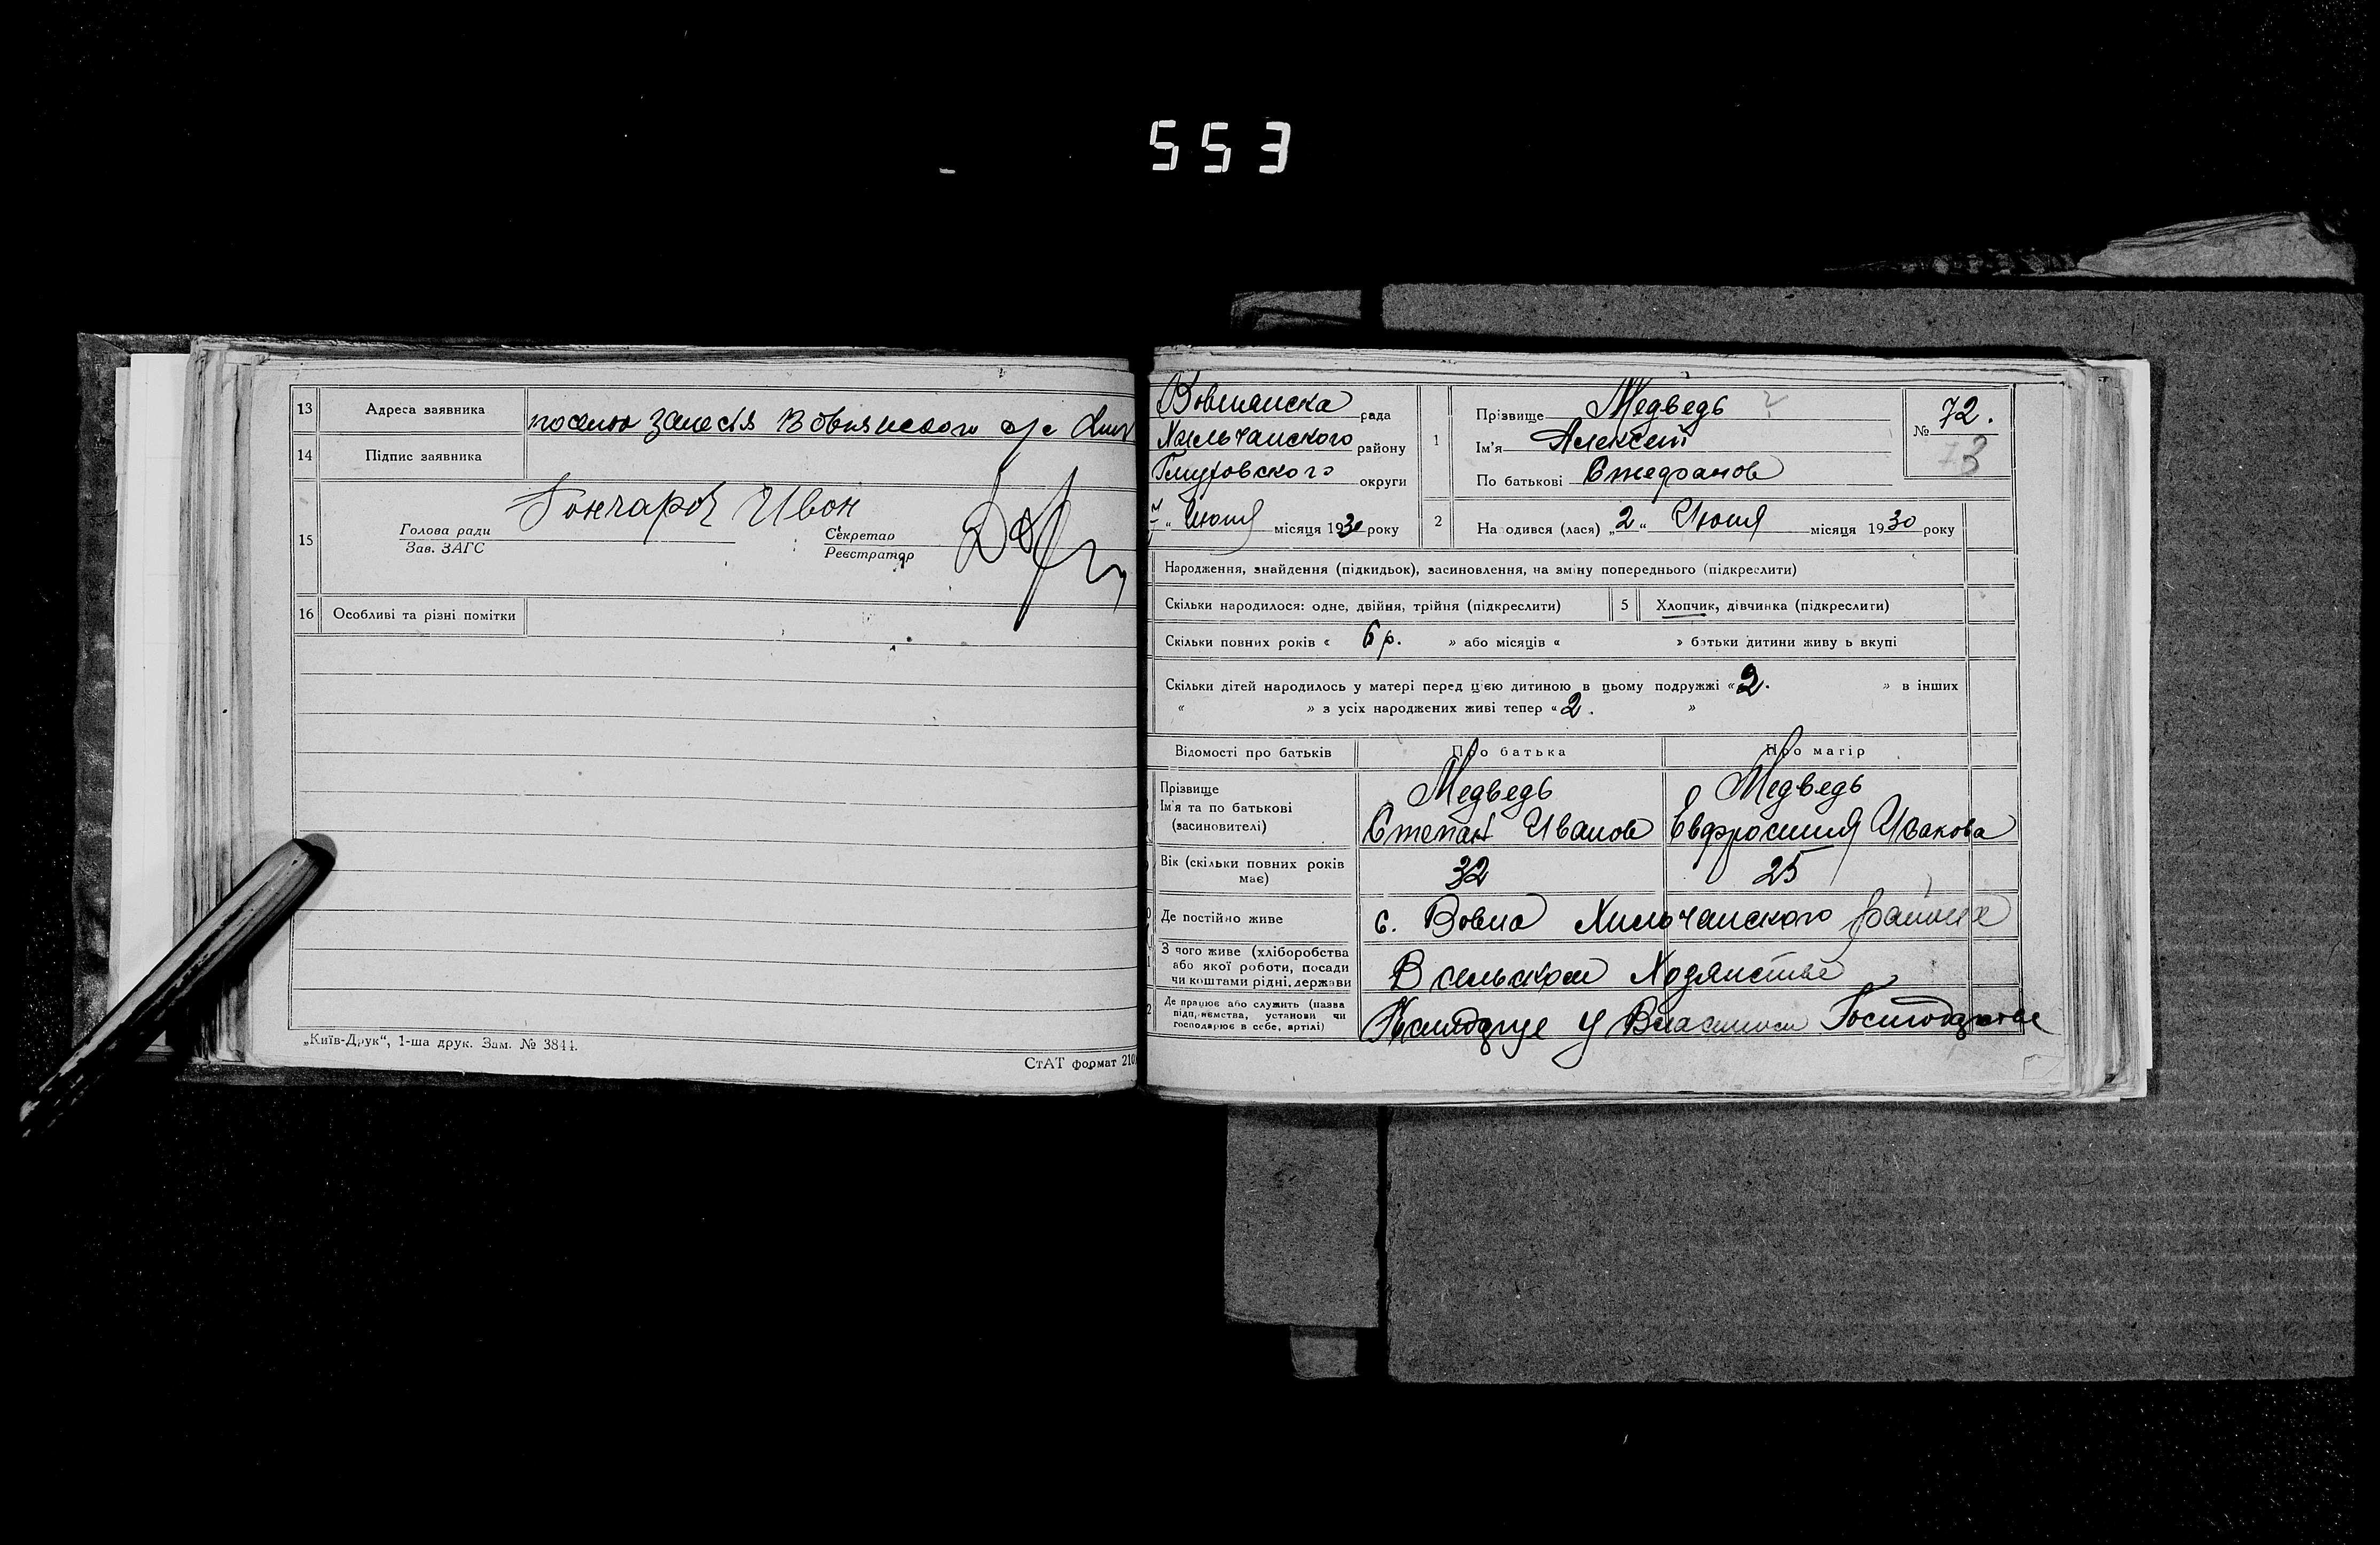 553
13 Адреса заявника
14 Підпис заявника
15 Голова ради Гончаров Ивон Секретар
Зав. ЗАГС Реєстратор
16 Особливі та різні помітки
„Київ-Друк“, 1-ша друк. Зам. № 3844.
СтАТ формат 210
рада
Хильчанского району
Глуховского округи
„ Июня місяця 1930 року
1 Прізвище Медведь
Ім'я Алексей
По батькові Стефанов
№ 72.
73
2 Народився (лася) „2“ Июня місяця 1930 року
Народження, знайдення (підкидьок), засиновлення, на зміну попереднього (підкреслити)
Скільки народилося: одне, двійня, трійня (підкреслити) 5 Хлопчик, дівчинка (підкреслити)
Скільки повних років « 6 р. » або місяців « » батьки дитини живуть вкупі
Скільки дітей народилось у матері перед цією дитиною в цьому подружжі «2. » в інших
« » з усіх народжених живі тепер «2. »
Відомості про батьків Про батька Про матір
Прізвище Медведь Медведь
Ім'я та по батькові
(засиновителі) Степан Иванов Евфросиния Ивакова
Вік (скільки повних років
має) 32 25
Де постійно живе с. Вовна Хильчанского района
З чого живе (хліборобства
або якої роботи, посади
чи коштами рідні, держави В сельском Хозяйстве
Де працює або служить (назва
підприємства, установи чи
господарює в себе, артілі) У Власном Господарстве